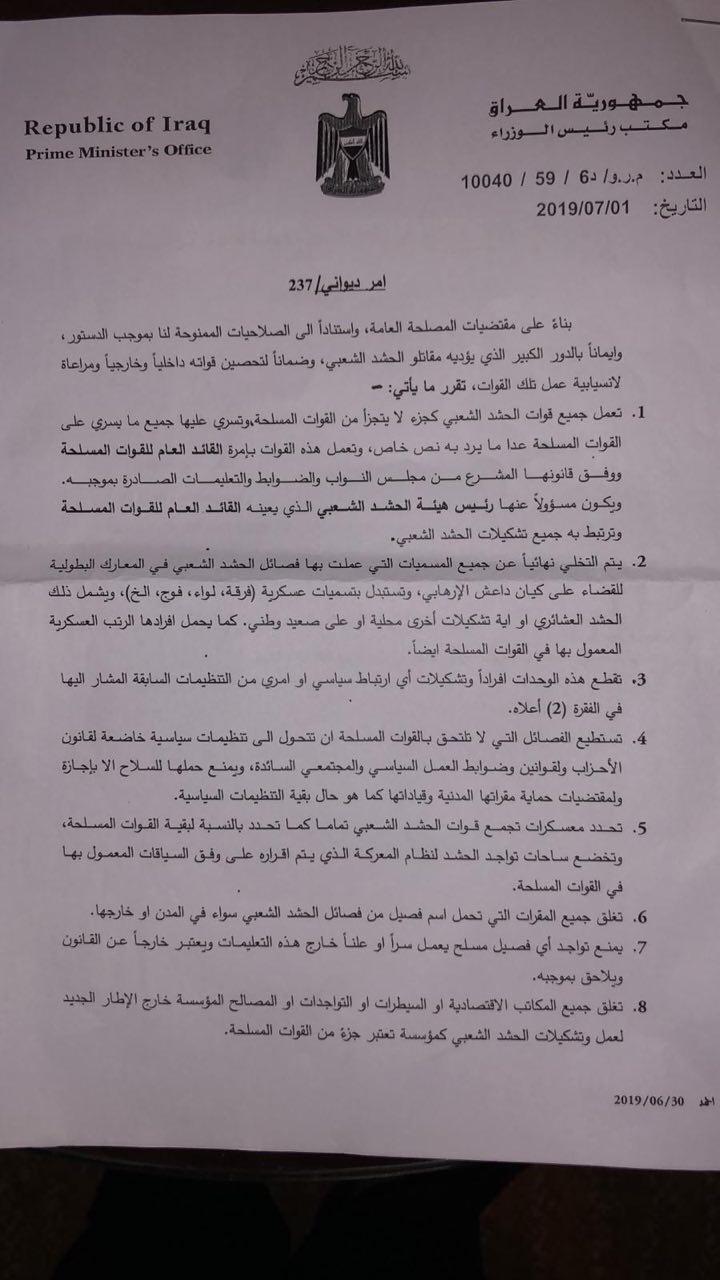 بسم الله الرحمن الرحيم
جمهورية العراق
مكتب رئيس الوزراء
Republic of Iraq
Prime Minister's Office
العدد: م.ر.و/ د6 / 59 / 10040
التاريخ: 2019/07/01
امر ديواني/237
بناءً على مقتضيات المصلحة العامة، واستناداً الى الصلاحيات الممنوحة لنا بموجب الدستور،
وايماناً بالدور الكبير الذي يؤديه مقاتلو الحشد الشعبي، وضماناً لتحصين قواته داخلياً وخارجياً ومراعاة
لانسيابية عمل تلك القوات، تقرر ما يأتي: –
1. تعمل جميع قوات الحشد الشعبي كجزء لا يتجزأ من القوات المسلحة،وتسري عليها جميع ما يسري على
القوات المسلحة عدا ما يرد به نص خاص، وتعمل هذه القوات بإمرة القائد العام للقوات المسلحة
ووفق قانونها المشرع من مجلس النواب والضوابط والتعليمات الصادرة بموجبه.
ويكون مسؤولاً عنها رئيس هيئة الحشد الشعبي الذي يعينه القائد العام للقوات المسلحة
وترتبط به جميع تشكيلات الحشد الشعبي.
2. يتم التخلي نهائياً عن جميع المسميات التي عملت بها فصائل الحشد الشعبي في المعارك البطولية
للقضاء على كيان داعش الإرهابي، وتستبدل بتسميات عسكرية (فرقة، لواء، فوج، الخ)، ويشمل ذلك
الحشد العشائري او اية تشكيلات أخرى محلية او على صعيد وطني. كما يحمل افرادها الرتب العسكرية
المعمول بها في القوات المسلحة ايضاً.
3. تقطع هذه الوحدات افراداً وتشكيلات أي ارتباط سياسي او امري من التنظيمات السابقة المشار اليها
في الفقرة (2) أعلاه.
4. تستطيع الفصائل التي لا تلتحق بالقوات المسلحة ان تتحول الى تنظيمات سياسية خاضعة لقانون
الأحزاب ولقوانين وضوابط العمل السياسي والمجتمعي السائدة، ويمنع حملها للسلاح الا بإجازة
ولمقتضيات حماية مقراتها المدنية وقياداتها كما هو حال بقية التنظيمات السياسية.
5. تحدد معسكرات تجمع قوات الحشد الشعبي تماما كما تحدد بالنسبة لبقية القوات المسلحة،
وتخضع ساحات تواجد الحشد لنظام المعركة الذي يتم اقراره على وفق السياقات المعمول بها
في القوات المسلحة.
6. تغلق جميع المقرات التي تحمل اسم فصيل من فصائل الحشد الشعبي سواء في المدن او خارجها.
7. يمنع تواجد أي فصيل مسلح يعمل سراً او علناً خارج هذه التعليمات ويعتبر خارجاً عن القانون
ويلاحق بموجبه.
8. تغلق جميع المكاتب الاقتصادية او السيطرات او التواجدات او المصالح المؤسسة خارج الإطار الجديد
لعمل وتشكيلات الحشد الشعبي كمؤسسة تعتبر جزءً من القوات المسلحة.
2019/06/30